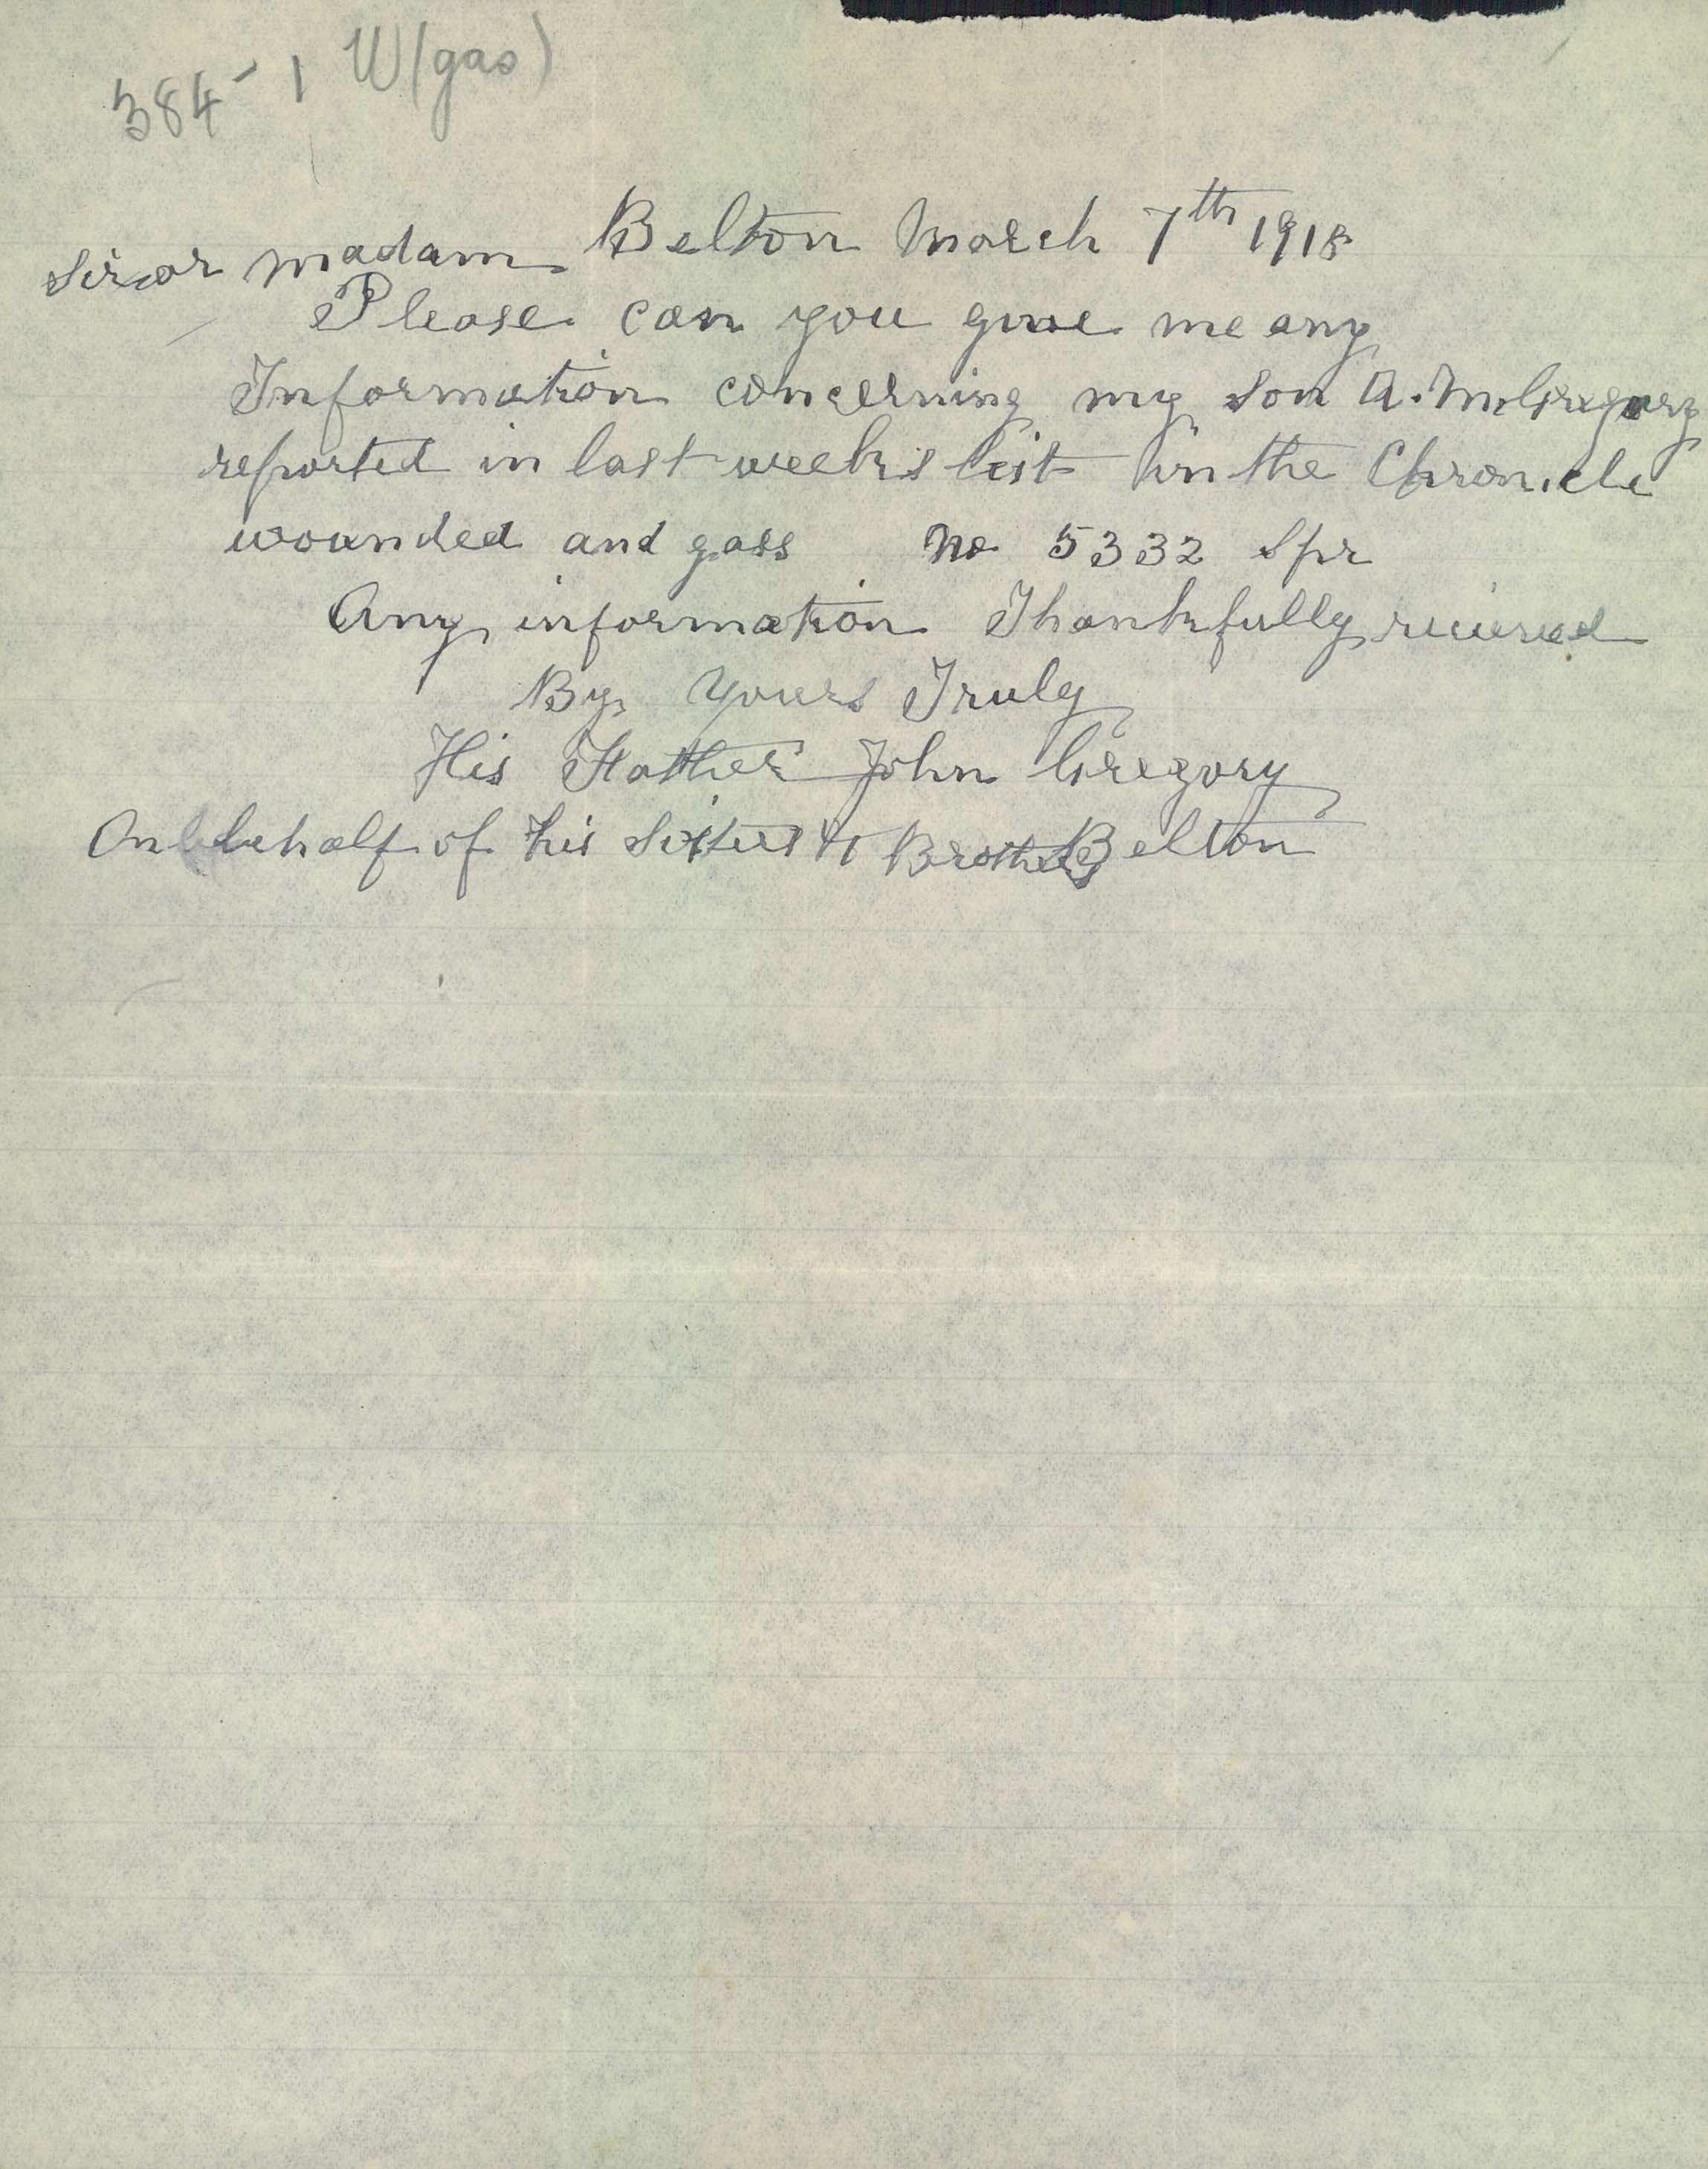 384-1 W(gas)
Belton March 7th 1918
Sir or madam
Please can you give me any
Information concerning my son A. M Gregory
reported in last weeks list in the Chronicle
wounded and gass No 5332 Spr
Any information Thankfully recieved
By Yours Truly
His Father John Gregory
On behalf of his Sisters & Brothers Belton